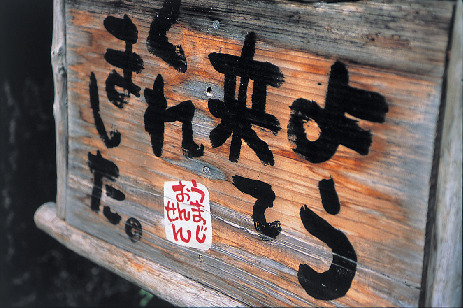 よう
来て
くれ
ました。
うまじ
おんせん